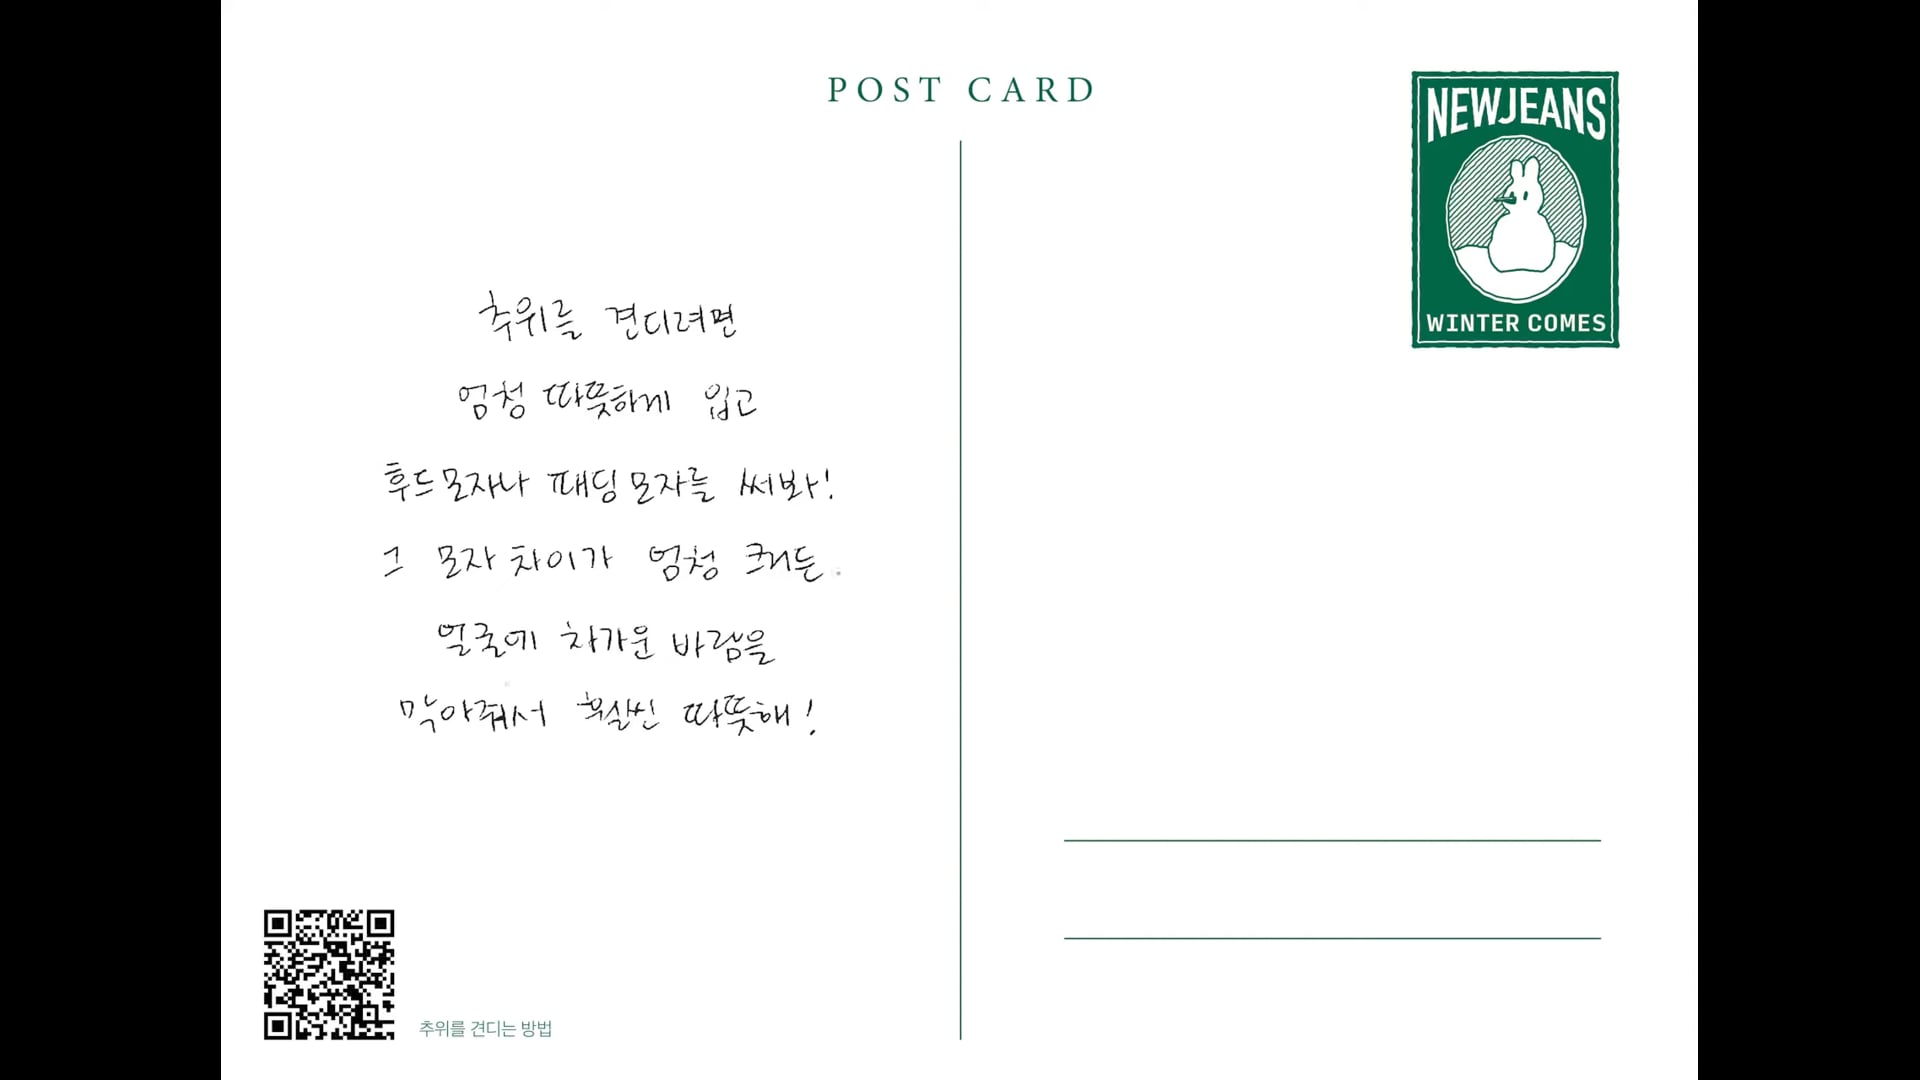 POST CARD
NEWJEANS
WINTER COMES
추위를 견디려면
엄청 따뜻하게 입고
후드모자나 패딩모자를 써봐!
그 모자 차이가 엄청 크거든.
얼굴에 차가운 바람을
막아줘서 훨씬 따뜻해!
추위를 견디는 방법